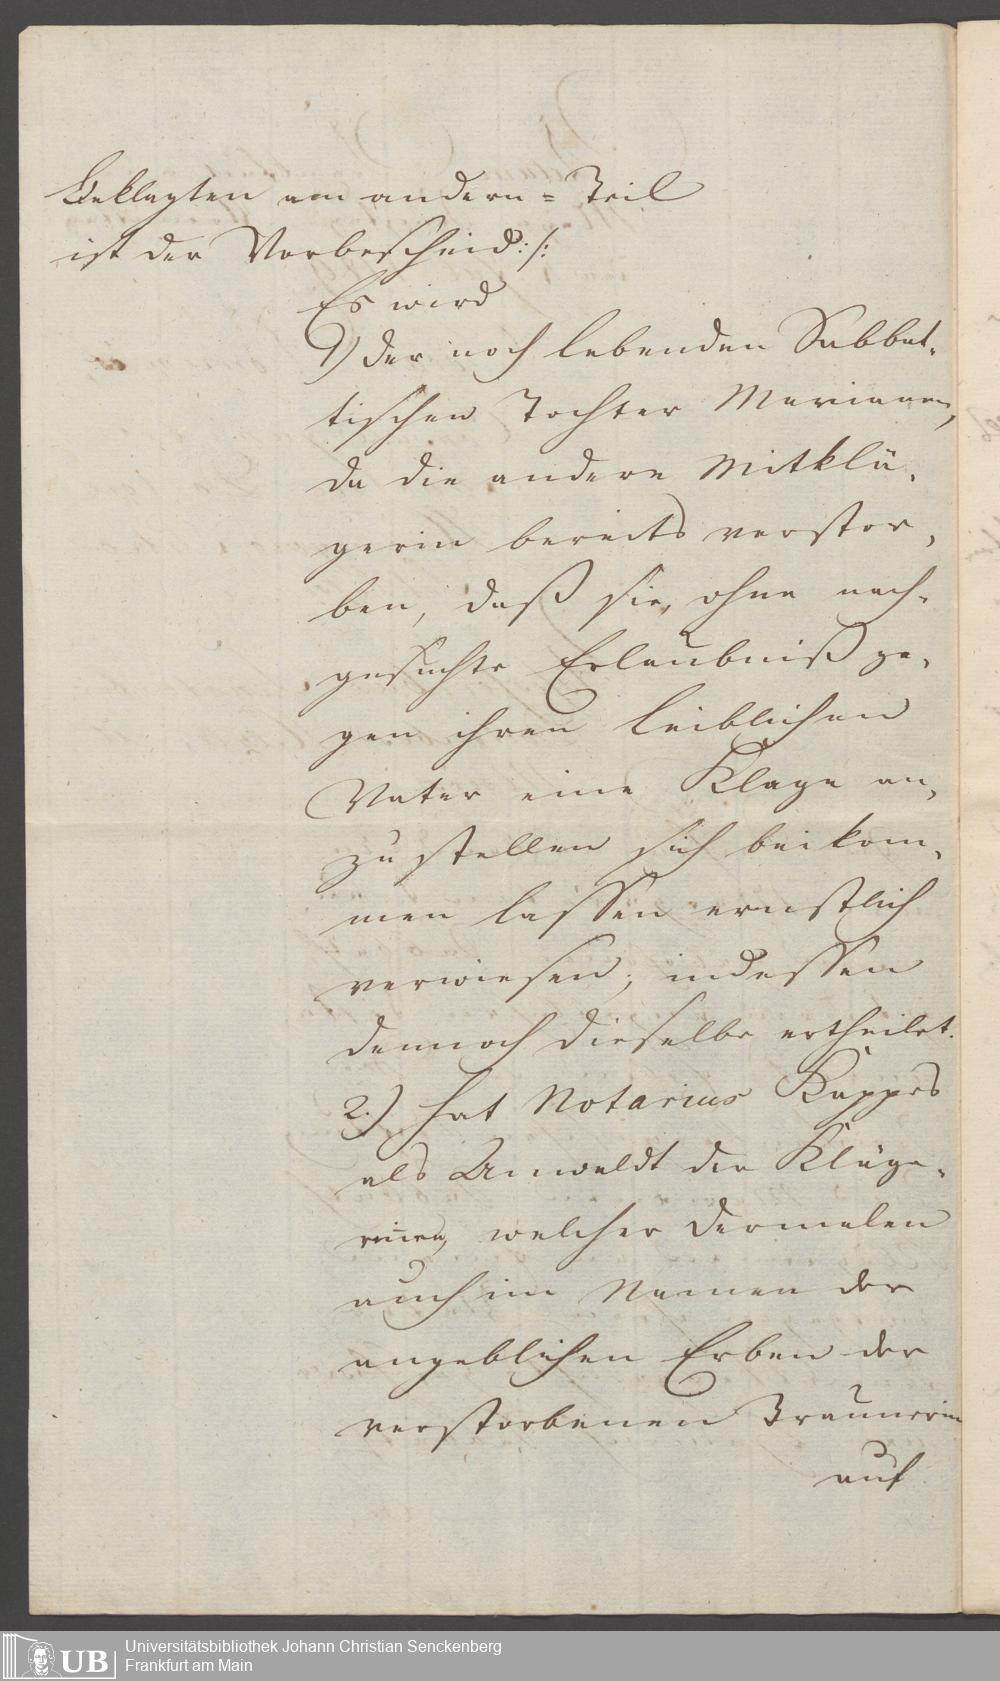 Beklagten am andern = Teil
ist der Vorbescheid :/:
Es wird
1) der noch lebenden Sabbat-
tischen Tochter Marianen,
da die andere Mitklä-
gerin bereits verstor-
ben, daß sie, ohne nach-
gesuchte Erlaubniß ge-
gen ihren leiblichen
Vater eine Klage an-
zustellen sich beikom-
men lassen ernstlich
verwiesen; indessen
dennoch dieselbe ertheilet.
2.) hat Notarius Kappes
als Anwaldt der Kläge-
rinen, welcher dermalen
auch im Namen der
angeblichen Erben der
verstorbenen Braunerin
auf
UB
Universitätsbibliothek Johann Christian Senckenberg
Frankfurt am Main